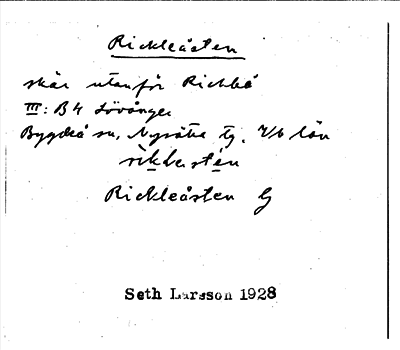 Rickleåsten
skär utanför Rickleå
III: B4 Lövånger
Bygdeå sn, Nysätra tg. V/b län
rìkleste̱n
Rickleåsten G
Seth Larsson 1928